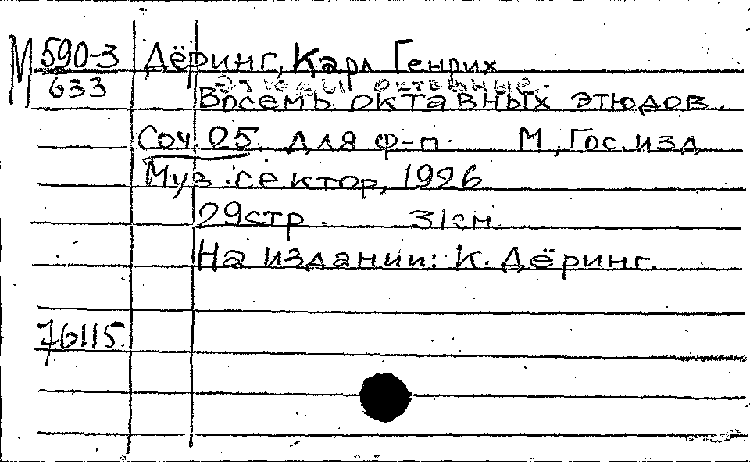 М 590-3 Дёринг, Карл Генрих
633 Этюды октавные.
Восемь октавных этюдов.
Соч. 25. Для ф-п. М., Гос. изд
Муз. сектор, 1926
29стр. 31см.
На издании: К. Дёринг.
76115